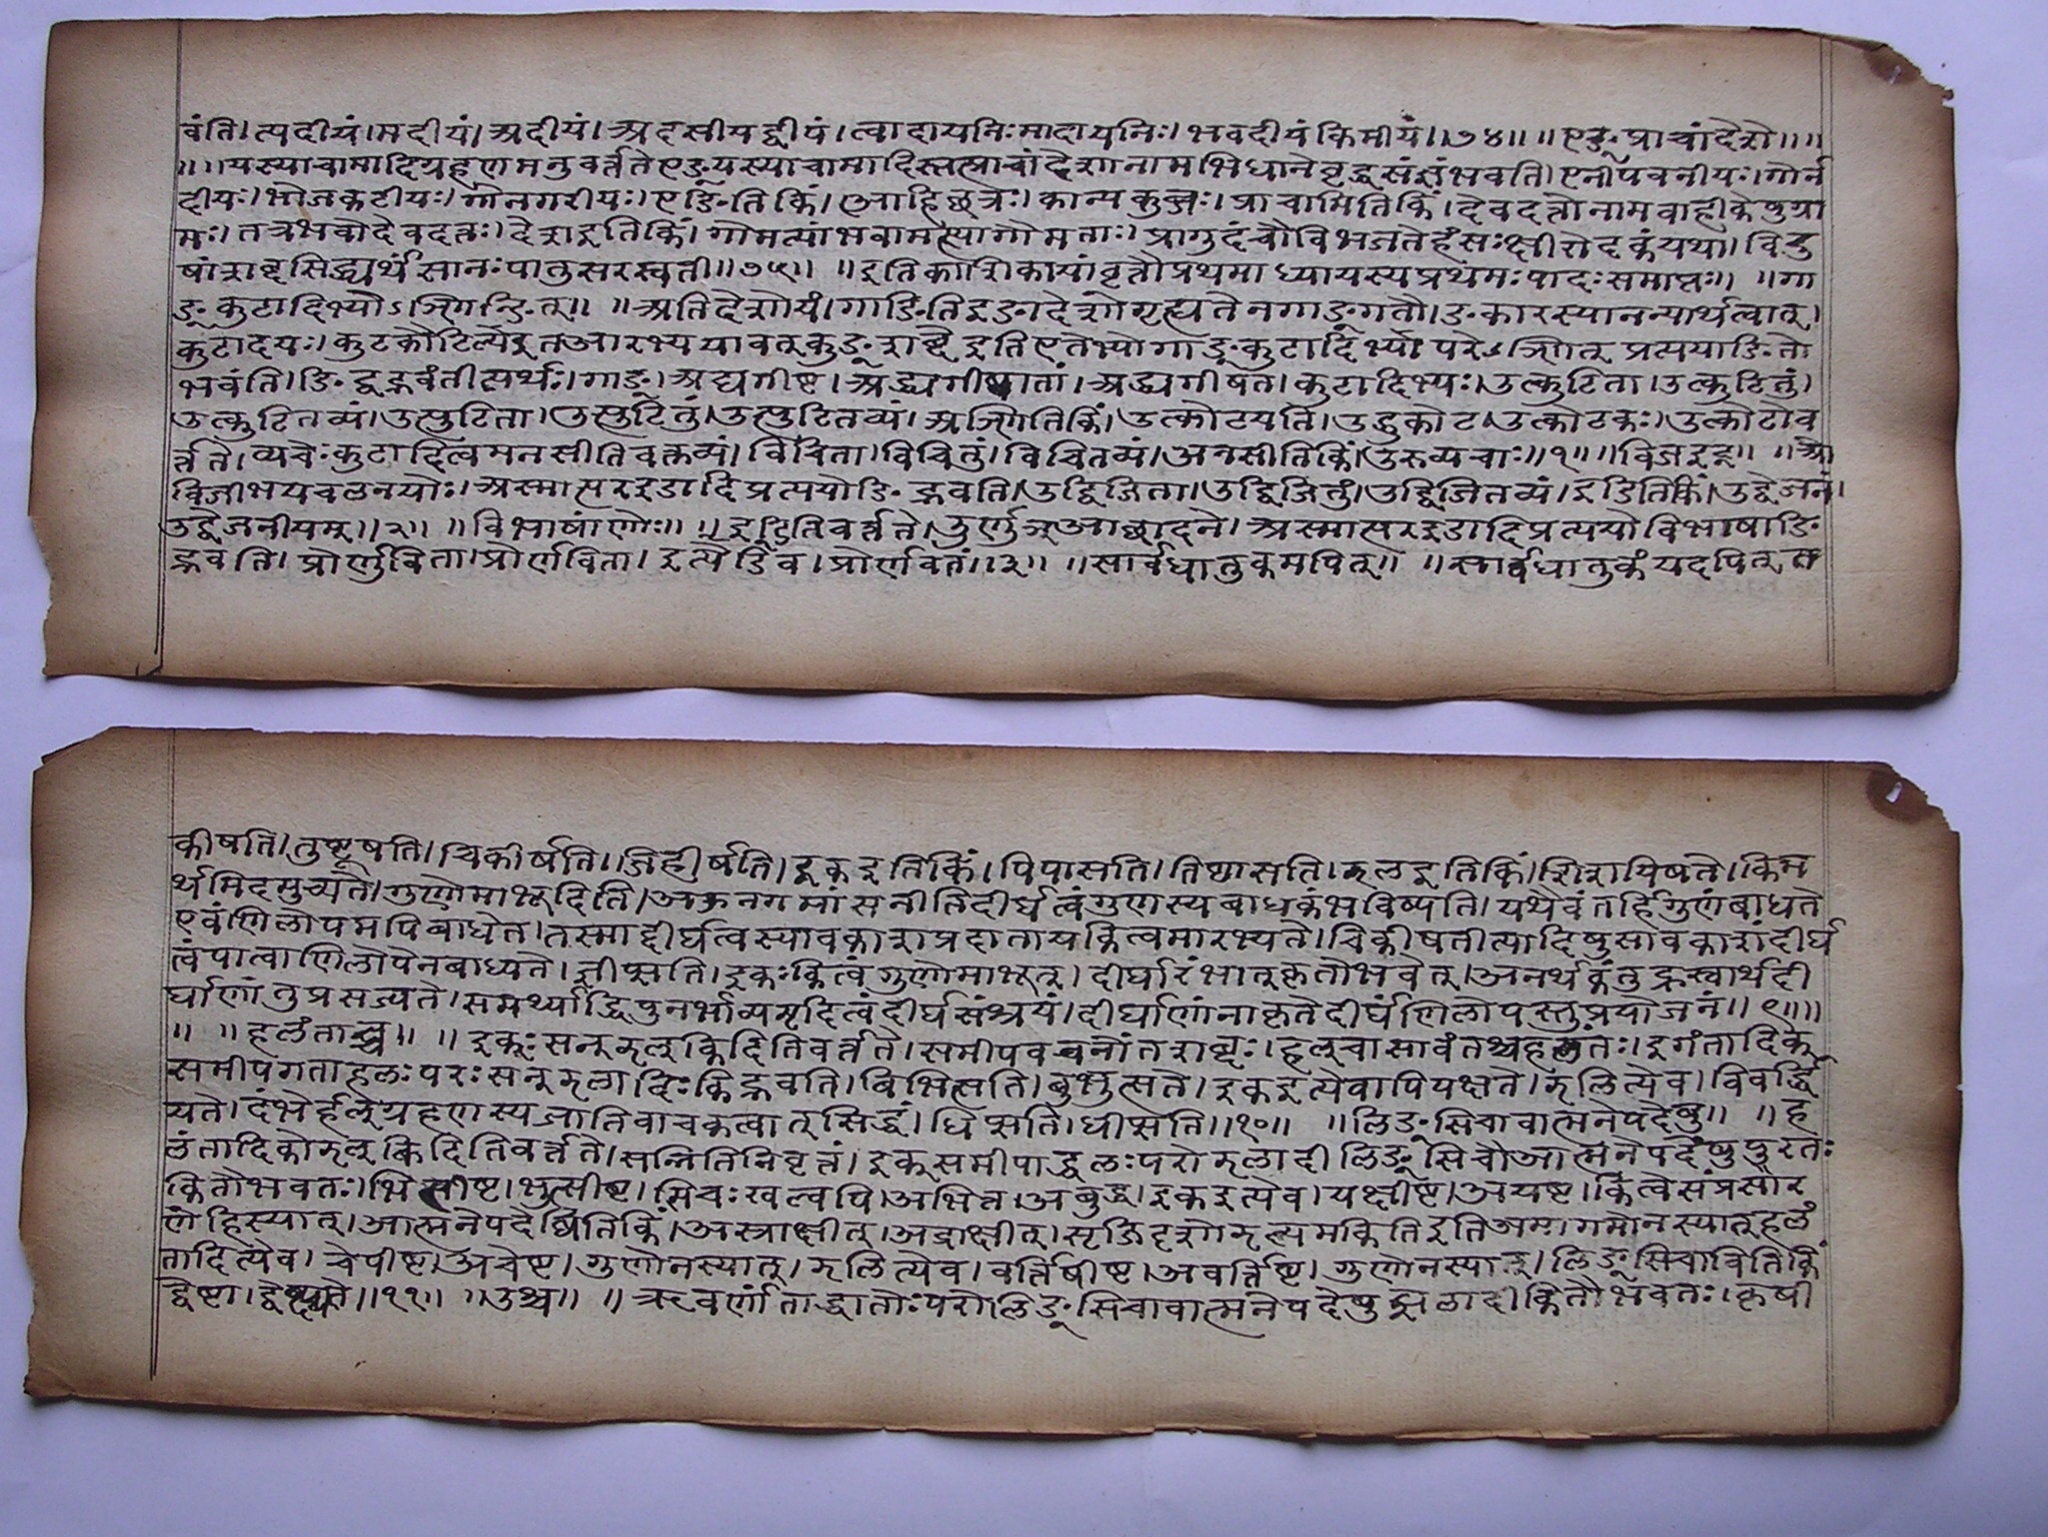 वंति। त्यदीयं। मदीयं। अदीयं। अदसीयद्वीपं। त्वादायनिः मादायनिः। भवदीयं किमीयं॥७४॥ ॥एङ् प्राचां देशे॥॥
॥॥यस्याचामादिग्रहणमनुवर्त्तते एङ् यस्याचामादिस्तत्प्राचां देशानामभिधाने वृद्धसंज्ञं भवति। एनीपवनीयः। गोर्न
दीयः। भोजकटीयः। गोनगरीयः। एङितिकिं। आहिछत्रः। कान्यकुब्जः। प्राचामितिकिं। देवदत्तोनामवाहीकेषुग्रा
मः। तत्रभवोदेवदत्तः। देशइतिकिं। गोमत्यांभवामत्स्यागोमताः। प्रागुदंचौविभजतेहंसःक्षीरोदकंयथा। विदु
षांशब्दसिद्ध्यर्थंसानःपातुसरस्वती॥७५॥ ॥इतिकाशिकायांवृत्तौप्रथमाध्यायस्यप्रथमःपादःसमाप्तः॥ ॥गा
ङ्कुटादिभ्योऽञ्णिन्ङित्॥ ॥अतिदेशोयं। गाङितिइङादेशोगृह्यतेनगाङ्गतौ। ङकारस्यानन्यार्थत्वात्।
कुटादयः। कुटकौटिल्येइतआरभ्ययावत्कुङ्शब्देइतिएतेभ्योगाङ्कुटादिभ्योपरेऽञ्णित्प्रत्ययाङितो
भवंति। ङिद्वद्भवंतीत्यर्थः। गाङ्। अद्यगीष्ट। अद्ध्यगीषातां। अद्ध्यगीषत। कुटादिभ्यः। उत्कुटिता। उत्कुटितुं।
उत्कुटितव्यं। उत्पुटिता। उत्पुटितुं। उत्पुटितव्यं। अञ्णितितिकिं। उत्कोटयति। उच्चुकोट। उत्कोटकः। उत्कोटोव
र्त्तते। व्यचेःकुटादित्वमनसीतिवक्तव्यं। विचिता। विचितुं। विचितव्यं। अनसीतिकिं। उरुव्यचाः॥१॥ ॥विजइट्॥ ॥ओ
विजीभयचलनयोः। अस्मात्परइडादिप्रत्ययोङिद्भवति। उद्विजिता। उद्विजितुं। उद्विजितव्यं। इडितिकिं। उद्वेजनं।
उद्वेजनीयम्॥२॥ ॥विभाषोर्णोः॥ ॥इडितिवर्त्तते। ऊर्णुञ्आछादने। अस्मात्परइडादिप्रत्ययोविभाषाङि
द्भवति। प्रोर्णुविता। प्रोर्णविता। इत्येडिव। प्रोर्णवनं॥३॥ ॥सार्वधातुकमपित्॥ ॥सार्वधातुकंयदपित्त
कीषति। तुष्टूषति। चिकीर्षति। जिहीर्षति। इकइतिकिं। पिपासति। तिष्ठासति। झलइतिकिं। शिशयिषते। किम
र्थमिदमुच्यते। गुणोमाभूदिति। अज्झनगमांसनीतिदीर्घत्वंगुणस्यबाधकंभविष्यति। यथैवतर्हिगुणंबाधते
एवंणिलोपमपिबाधेत। तस्माद्दीर्घत्वस्यावकाशप्रदानायकित्वमारभ्यते। चिकीषतीत्यादिषुसावकाशंदीर्घ
त्वंपरत्वाण्णिलोपेनबाध्यते। ज्ञीप्सति। इकःकित्वंगुणोमाभूत्। दीर्घारंभात्कृतेतौभवेत्। अनर्थकंतुह्रस्वार्थंदी
र्घाणांतुप्रसज्यते। समर्थ्याद्धिपुनर्भाव्यमृदित्वंदीर्घसंश्रयं। दीर्घाणांनाकृतेदीर्घेणिलोपस्तुप्रयोजनं॥९॥॥
॥ ॥हलंताच्च॥ ॥इकःसन्झल्किदितिवर्त्तते। समीपवचनोंतशब्दः। हल्चासावंतश्चहलंतः। इगंतादिक्
समीपगताहलःपरःसन्झलादिःकिद्भवति। बिभित्सति। बुभुत्सते। इकइत्येवापियक्षते। झलित्येव। विवर्द्धि
यते। दंभेर्हल्ग्रहणस्यजातिवाचकत्वात्सिद्धं। धिप्सति। धीप्सति॥१०॥ ॥लिङ्सिचावात्मनेपदेषु॥ ॥ह
लंतादिकोझल्किदितिवर्त्तते। सन्नितिनिवृत्तं। इक्समीपाद्धलःपरोझलादीलिङ्सिचौआत्मनेपदेषुपुरतः
कितौभवतः। भित्सीष्ट। भुत्सीष्ट। सिचःखल्वपि। अभित्त। अबुद्ध। इकइत्येव। यक्षीष्ट। अयष्ट। कित्वेसंप्रसार
णंहिस्यात्। आत्मनेपदेष्वितिकिं। अस्त्राक्षीत्। अद्राक्षीत्। सृजिदृशोर्झल्यमकितिइतिअमागमोनस्यात्हलं
तादित्येव। चेषीष्ट। अचेष्ट। गुणोनस्यात्। झलित्येव। वर्त्तिषीष्ट। अवर्त्तिष्ट। गुणोनस्यात्। लिङ्सिचावितिकिं
द्वेष्टा। द्वेक्ष्यते॥११॥ ॥उश्च॥ ॥ऋवर्णांताद्धातोःपरोलिङ्सिचावात्मनेपदेषुझलादीकितौभवतः। कृषी